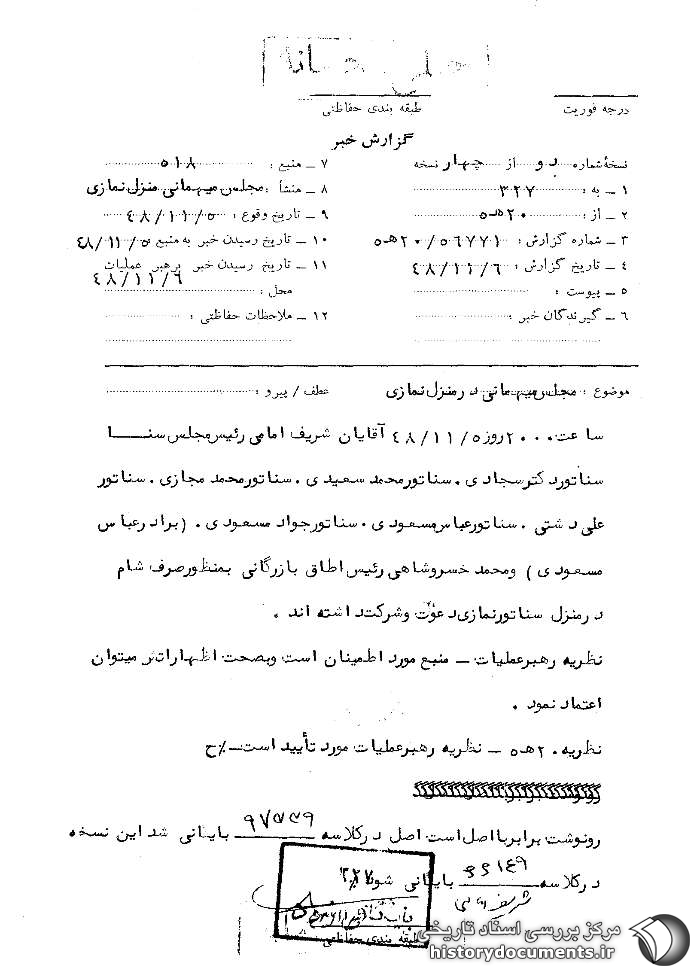 درجه فوریت
طبقه بندی حفاظتی
گزارش خبر
نسخهٔ شماره دو از چهار نسخه
۷ ـ منبع : ۵۱۸
۱ ـ به : ۳۲۷
۸ ـ منشأ : مجلس میهمانی منزل نمازی
۲ ـ از : ۲۰هـ۵
۹ ـ تاریخ وقوع : ۴۸/۱۱/۵
۳ ـ شماره گزارش : ۲۰/۵۶۷۷۱هـ۵
۱۰ ـ تاریخ رسیدن خبر به منبع ۴۸/۱۱/۵
۴ ـ تاریخ گزارش : ۴۸/۱۱/۶
۱۱ ـ تاریخ رسیدن خبر برهبر عملیات
۴۸/۱۱/۶
۵ ـ پیوست :
محل :
۶ ـ گیرندگان خبر :
۱۲ ـ ملاحظات حفاظتی :
موضوع : مجلس میهمانی در منزل نمازی
عطف / پیرو :
ساعت ۲۰۰۰ روز ۴۸/۱۱/۵ آقایان شریف امامی رئیس مجلس سنا
سناتور دکتر سجادی . سناتور محمد سعیدی . سناتور محمد حجازی . سناتور
علی دشتی . سناتور عباس مسعودی . سناتور جواد مسعودی . (برادر عباس
مسعودی) و محمد خسروشاهی رئیس اطاق بازرگانی بمنظور صرف شام
در منزل سناتور نمازی دعوت و شرکت داشته اند .
نظریه رهبر عملیات ـ منبع مورد اطمینان است و بصحت اظهاراتش میتوان
اعتماد نمود .
نظریه ۲۰هـ۵ ـ نظریه رهبر عملیات مورد تأیید است ـ /ح
رونوشت برابر با اصل است اصل در کلاسه ۹۷۵۵۹ بایگانی شد این نسخه
در کلاسه ۶۶۱۴۹ بایگانی شود
شریف امامی
طبقه بندی حفاظتی
مرکز بررسی اسناد تاریخی
historydocuments.ir